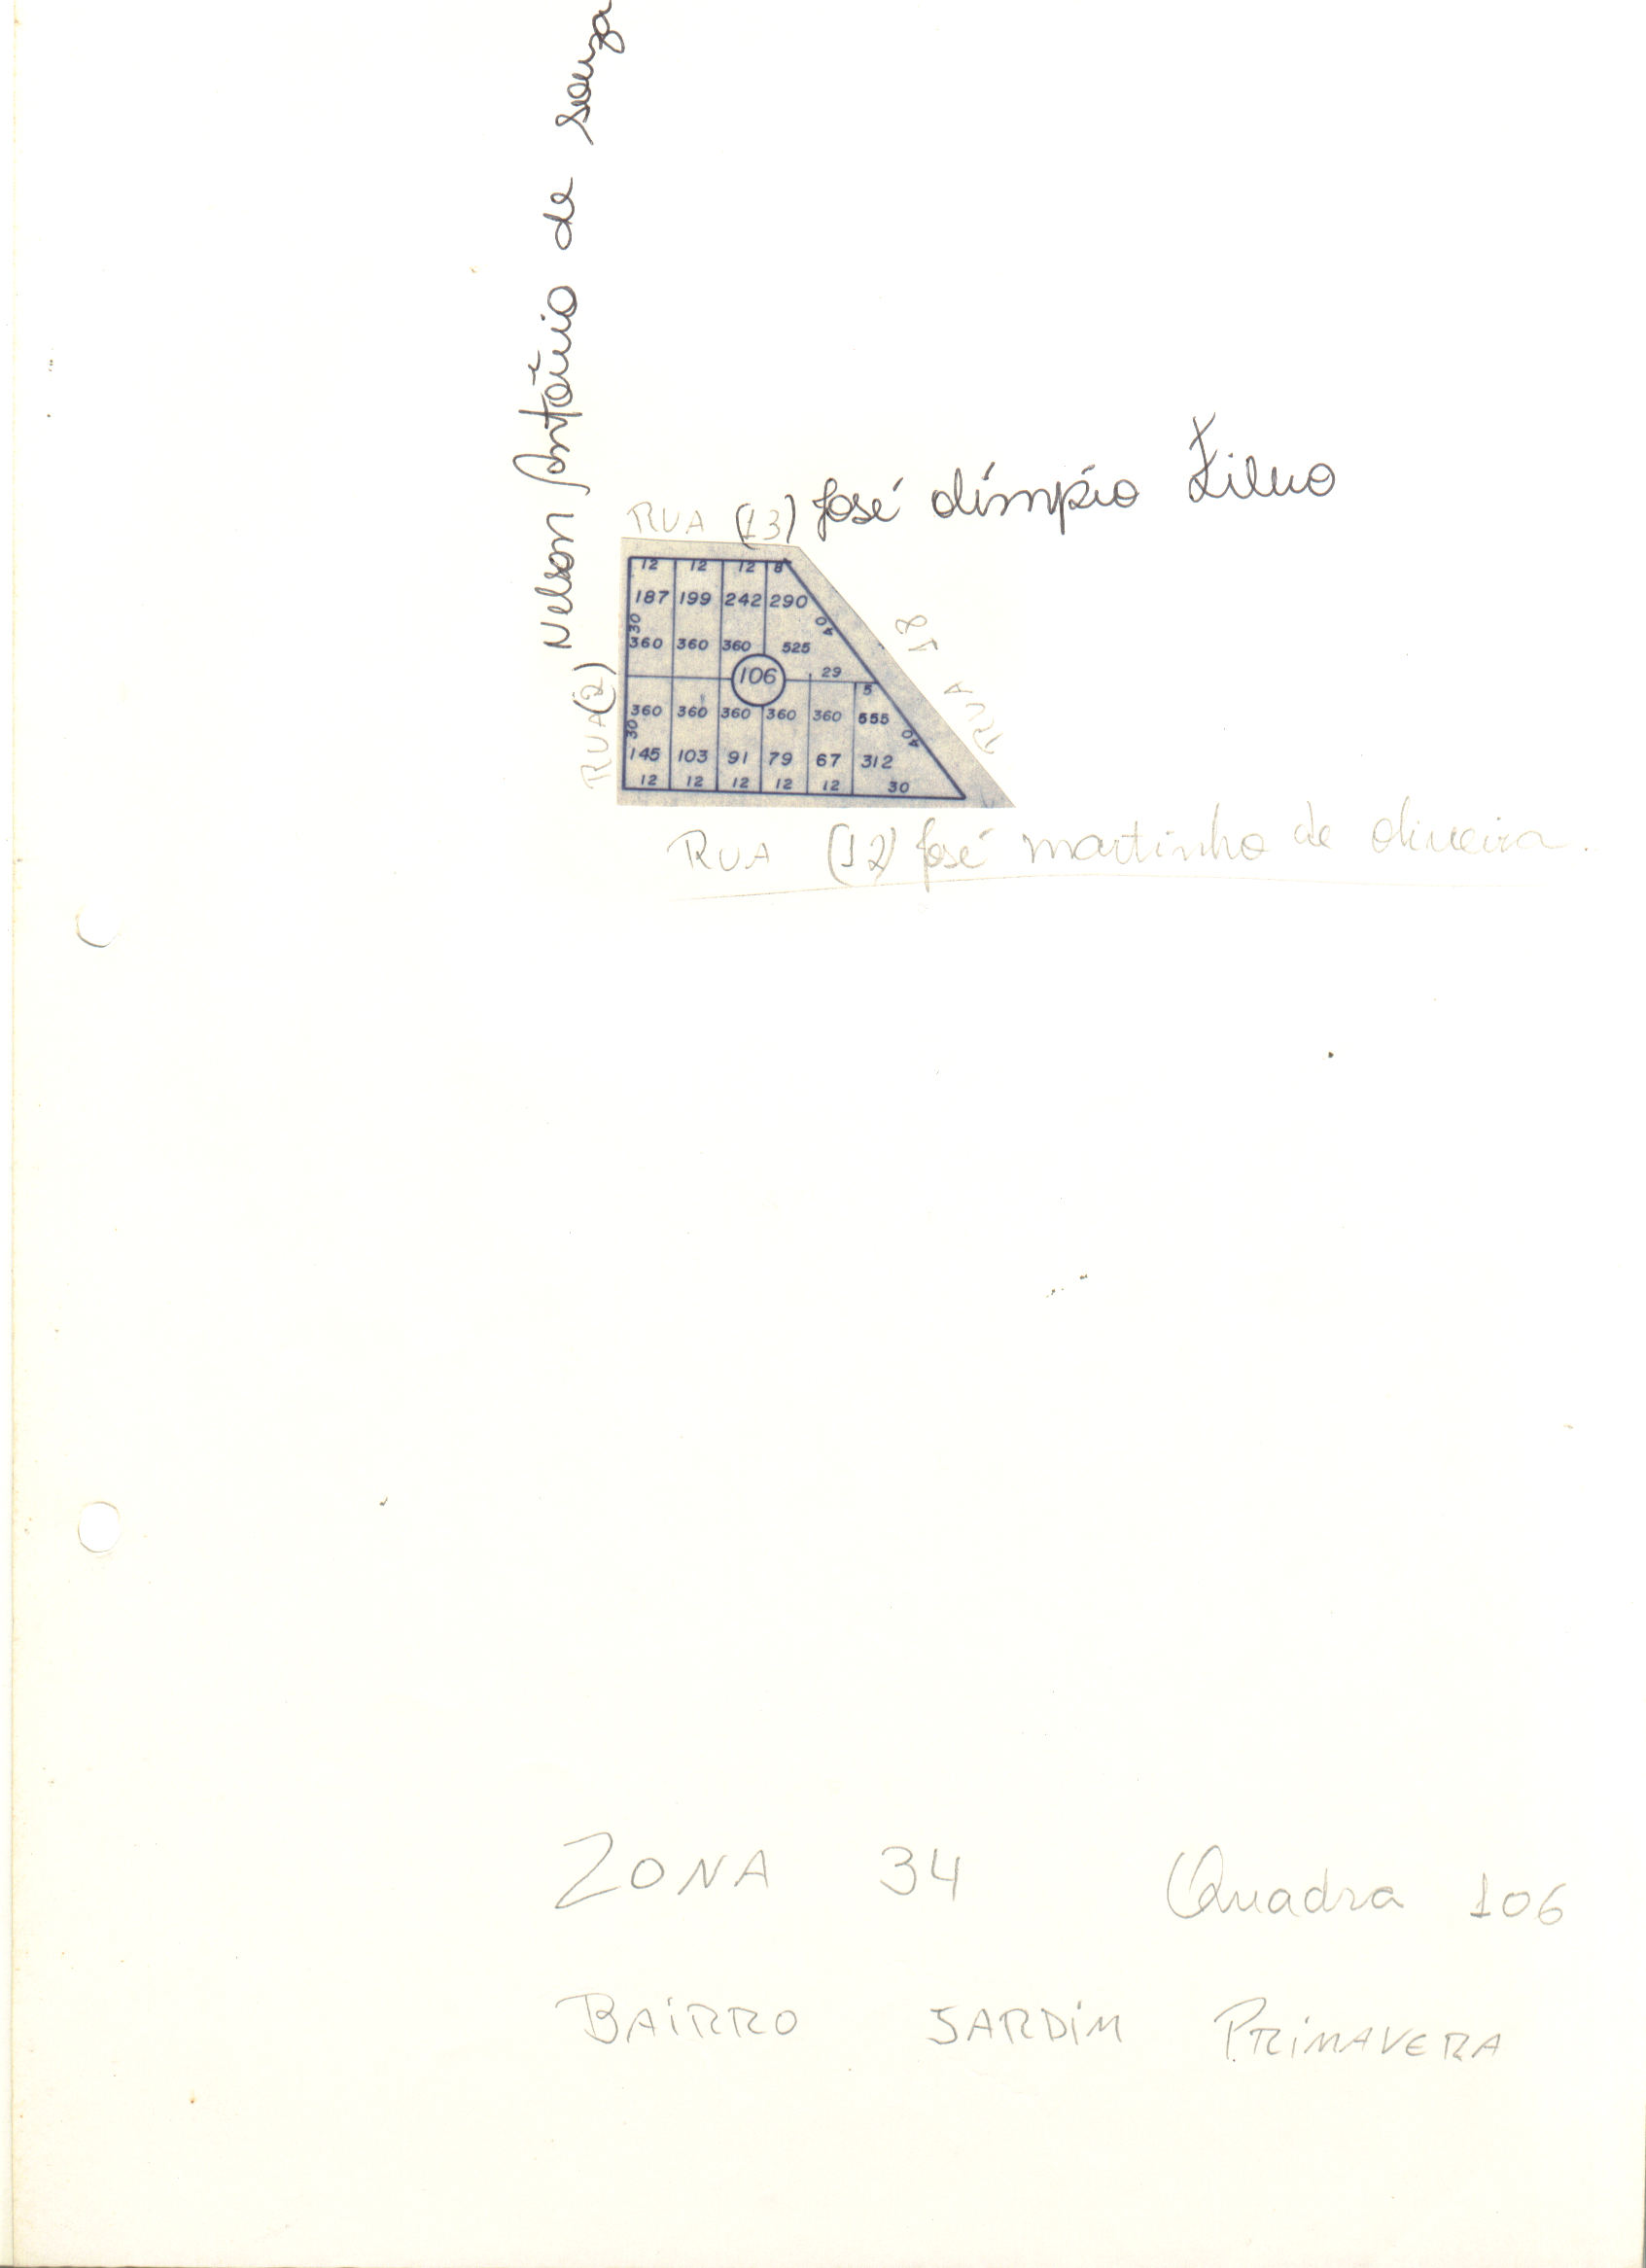 Nelson Antônio de souza
RUA (13) José olímpio
RUA (2)
RUA 18
12 12 12 8
187 199 242 290
30 40
360 360 360 525
106 29
5
360 360 360 360 360 555
30 40
145 103 91 79 67 312
12 12 12 12 12 30
RUA (12) José martinho de oliveira.
ZONA 34 Quadra 106
BAIRRO JARDIM PRIMAVERA